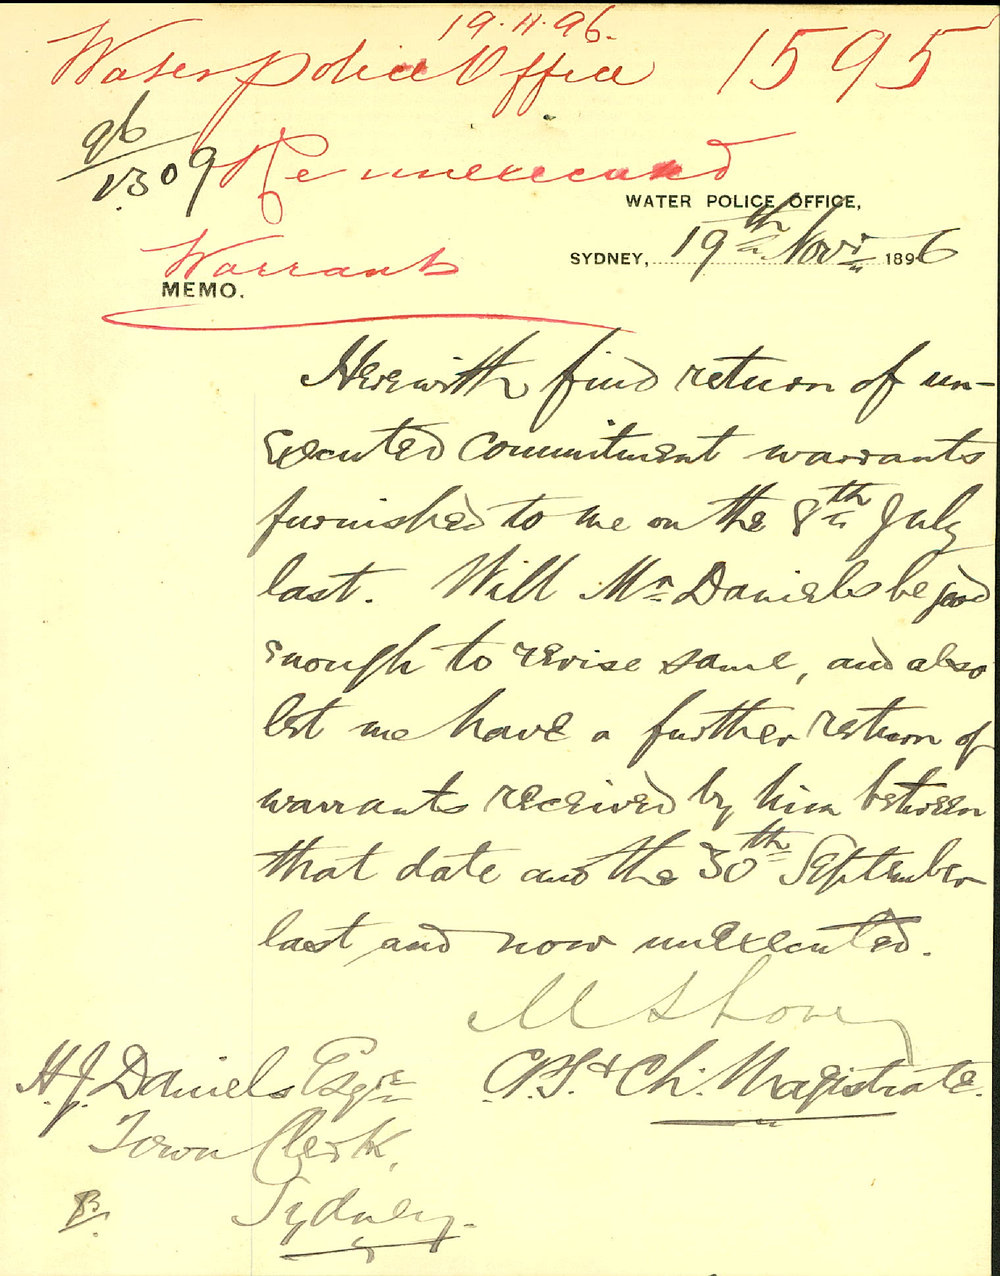 19.11.96.
Water police Office 1595
96
1309
Re unexecuted
WATER POLICE OFFICE,
SYDNEY, 19th Novr 1896
Warrants
MEMO.
Herewith find return of un-
executed commitment warrants
furnished to me on the 8th July
last. Will Mr Daniels be good
enough to revise same, and also
let me have a further return of
warrants received by him between
that date and the 30th September
last and now unexecuted.
C.P.S + Ch: Magistrate.
H.J. Daniels Esqre
Town Clerk,
Sydney.